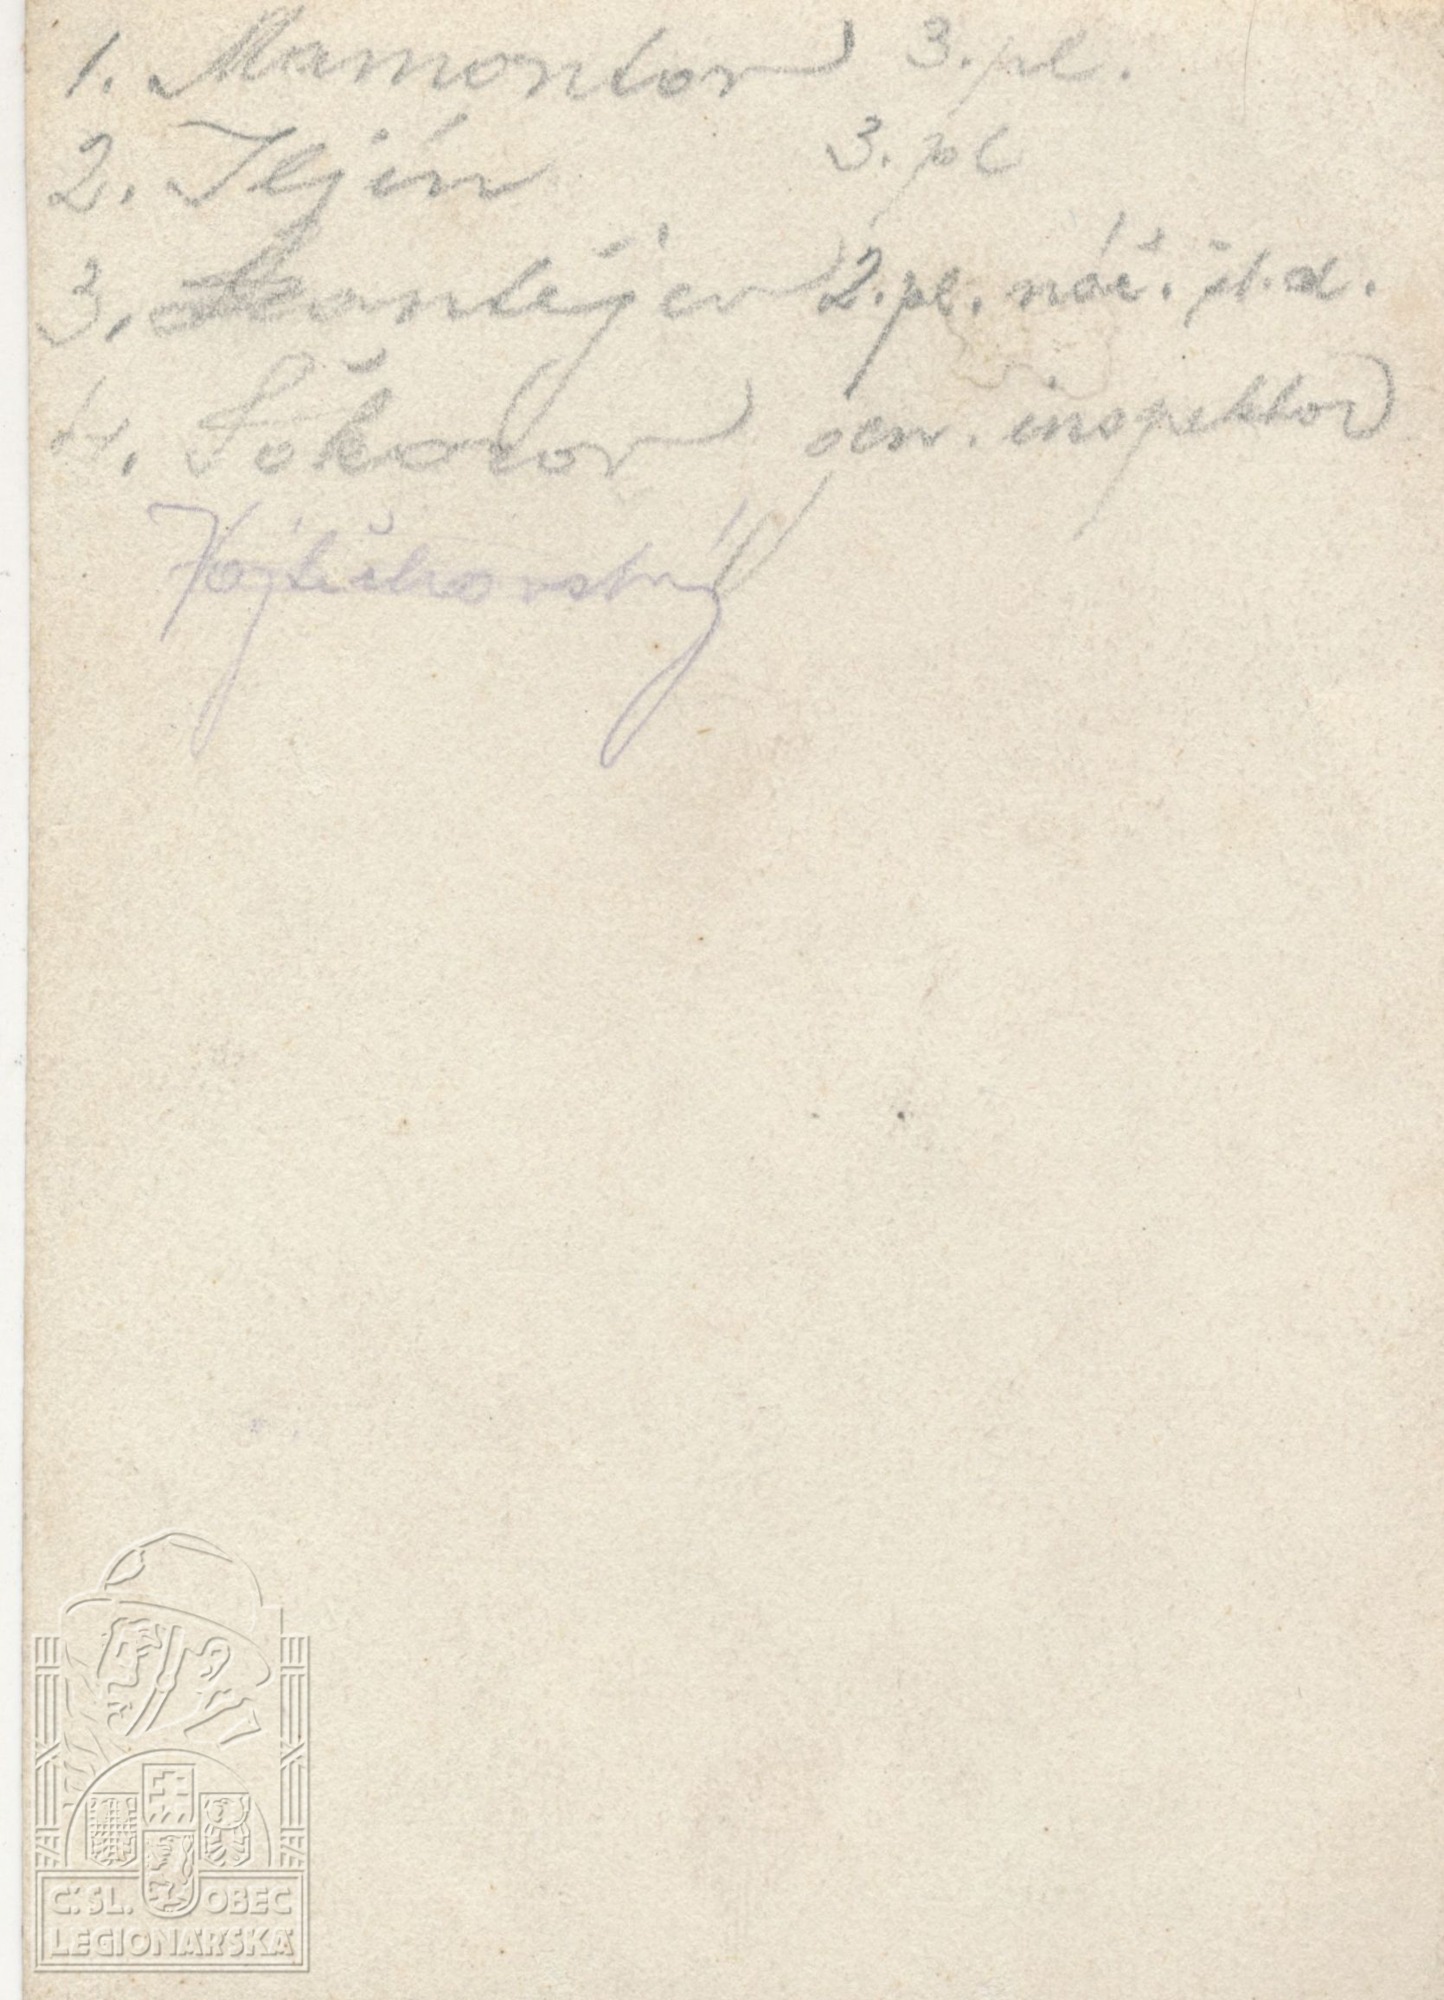 1. Mamontov 3. pl.
2. Iljin 3. pl
3. Leontějev 2. pl. náč. št. d.
4. Šokorov gen. inspektor
Vojtěchovský
Č.SL. OBEC
LEGIONÁŘSKÁ